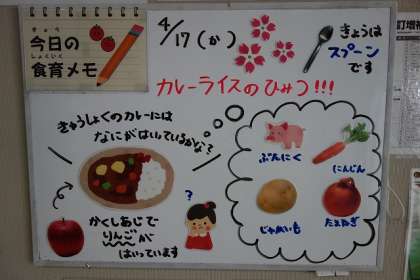 きょう
今日の
しょくいく
食育メモ
4/17(か)
きょうは
スプーン
です
カレーライスのひみつ!!!
きゅうしょくのカレーには
なにがはいているかな?
ぶたにく
にんじん
じゃがいも
たまねぎ
?
かくしあじで
りんごが
はいっています